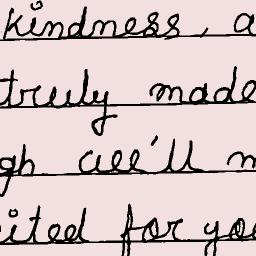 kindness, a
truly made
gh we'll m
ited for you